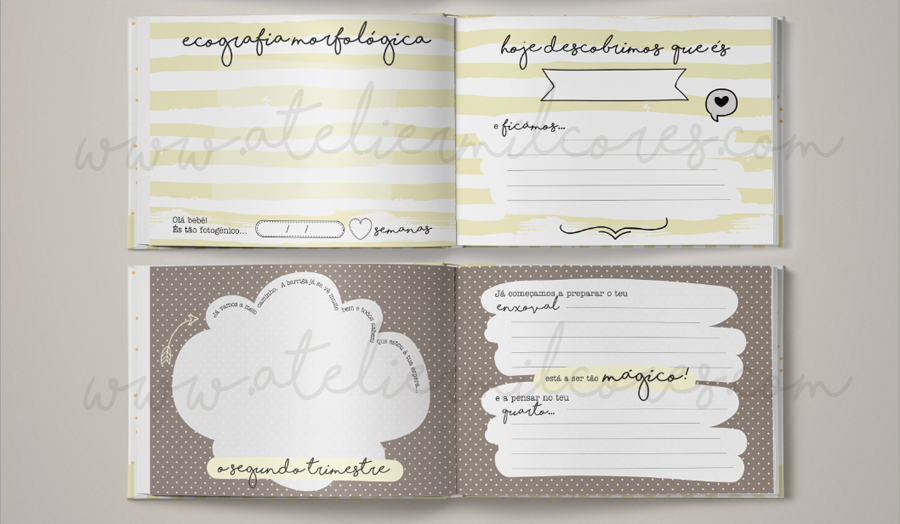 ecografia morfológica
Olá bebé!
És tão fotogénico...
/ /
semanas
hoje descobrimos que és
e ficámos...
www.ateliermilcores.com
Já vamos a meio caminho. A barriga já se vê muito bem e todos sabem que estou à tua espera...
o segundo trimestre
Já começamos a preparar o teu
enxoval
está a ser tão mágico!
e a pensar no teu
quarto...
www.ateliermilcores.com